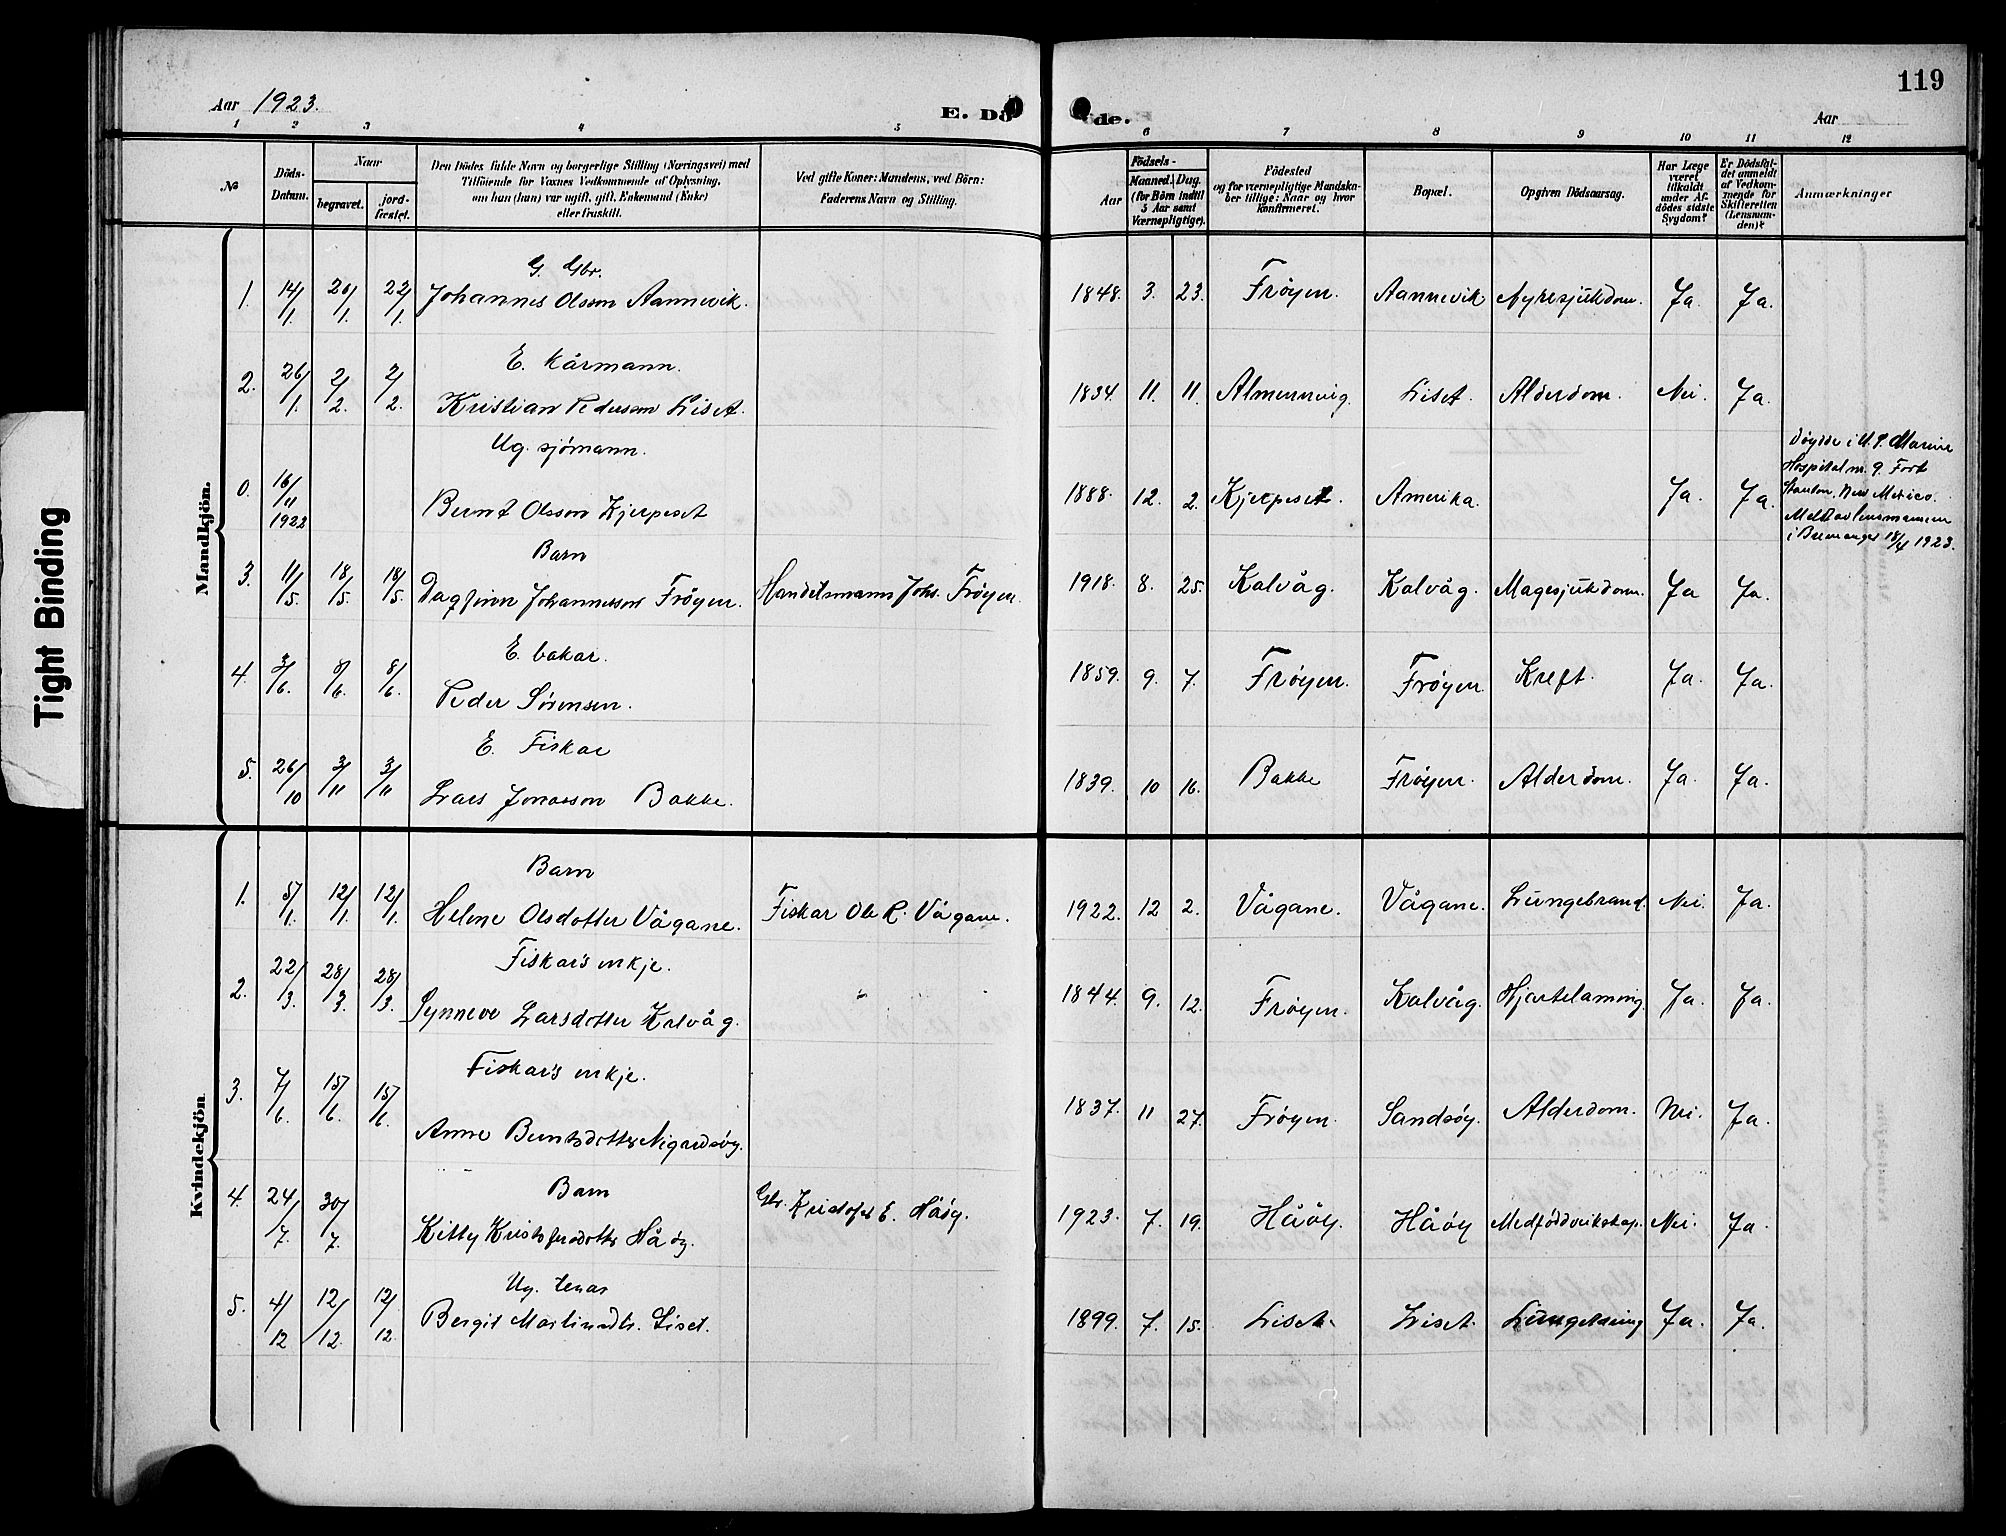 119
Aar 1923.
E. Dö
de.
Aar
1 2 3 4 5 6 7 8 9 10 11 12
No
Döds-
Datum.
Naar
begravet.
jord-
fæstet.
Den Dödes fulde Navn og borgerlige Stilling (Næringsvei) med
Tilföiende for Voxnes Vedkommende af Oplysning,
om han (hun) var ugift, gift, Enkemand (Enke)
eller fraskilt.
Ved gifte Koner: Mandens, ved Börn:
Faderens Navn og Stilling.
Aar
Födsels-
Maaned. Dag.
(for Börn indtil
5 Aar samt
Værnepligtige).
Födested
og for værnepligtige Mandska-
ber tillige: Naar og hvor
Konfirmeret.
Bopæl.
Opgiven Dödsaarsag.
Har Læge
været
tilkaldt
under Af-
dödes sidste
Sygdom?
Er Dödsfal-
det anmeldt
af Vedkom-
mende for
Skifteretten
(Lensman-
den)?
Anmærkninger
Mandkjön.
G. Gbr.
1. 14/1. 20/1. 22/1. Johannes Olsson Aannevik. 1848. 3. 23. Frøyen. Aannevik Nyresjukdom. Ja. Ja.
E. kårmann.
2. 26/1. 2/2. 2/2. Kristian Pederson Liset. 1834. 11. 11. Almenning. Liset. Alderdom. Nei. Ja.
Ug. sjømann.
0. 16/11 1922 Bernt Olsson Kjerpeset 1888. 12. 2. Kjerpeset. Amerika. Ja. Ja.
Døydde i U. S. Marine
Hospital n. 9. Fort
Stanton, New Mexico.
Meldt av lensmannen
i Bremanger 18/4 1923.
Barn
3. 11/5. 18/5. 18/5. Dagfinn Johannesson Frøyen. Handelsmann Johs. Frøyen. 1918. 8. 25. Kalvåg. Kalvåg. Magesjukdom. Ja Ja.
E. bakar.
4. 3/6. 8/6. 8/6. Peder Sørensen. 1859. 9. 7. Frøyen. Frøyen. Kreft. Ja. Ja.
E. Fiskar
5. 26/10 3/11 3/11 Lars Jonasson Bakke. 1839. 10 16. Bakke Frøyen. Alderdom. Ja. Ja.
Kvindekjön
Barn
1. 5/1. 12/1. 12/1. Helene Olsdotter Vågane. Fiskar Ole R. Vågane. 1922. 12 2. Vågane. Vågane. Lungebrand. Nei. Ja.
Fiskar's enkje.
2. 22/3. 28/3. 28/3. Synneve Larsdotter Kalvåg. " 1844. 9. 12. Frøyen. Kalvåg. Hjartelamming. Ja. Ja.
Fiskar's enkje.
3. 7/6. 15/6. 15/6. Anne Berntsdotter Nigardsøy. 1837. 11 27. Frøyen. Sandsøy. Alderdom. Nei. Ja.
Barn
4. 24/7. 30/7. Kitty Kristofersdotter Håøy. Gbr. Kristofer E. Håøy. 1923. 7. 19. Håøy. Håøy Medfødd veikskap. Nei. Ja.
Ug. tenar
5. 4/12 12/12. 12/12. Bergit Martinsdtr. Liset. 1899. 7. 15. Liset. Liset. Ja. Ja.
Tight Binding